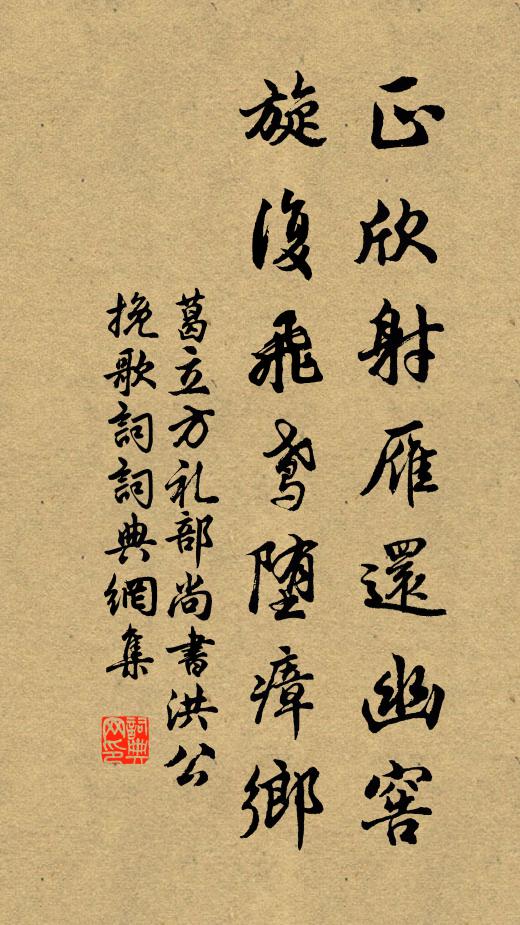 正欣射雁還幽窖
旋復飛鳶堕瘴鄉
葛立方礼部尚書洪公
挽歌詞詞典網集
詞典网印